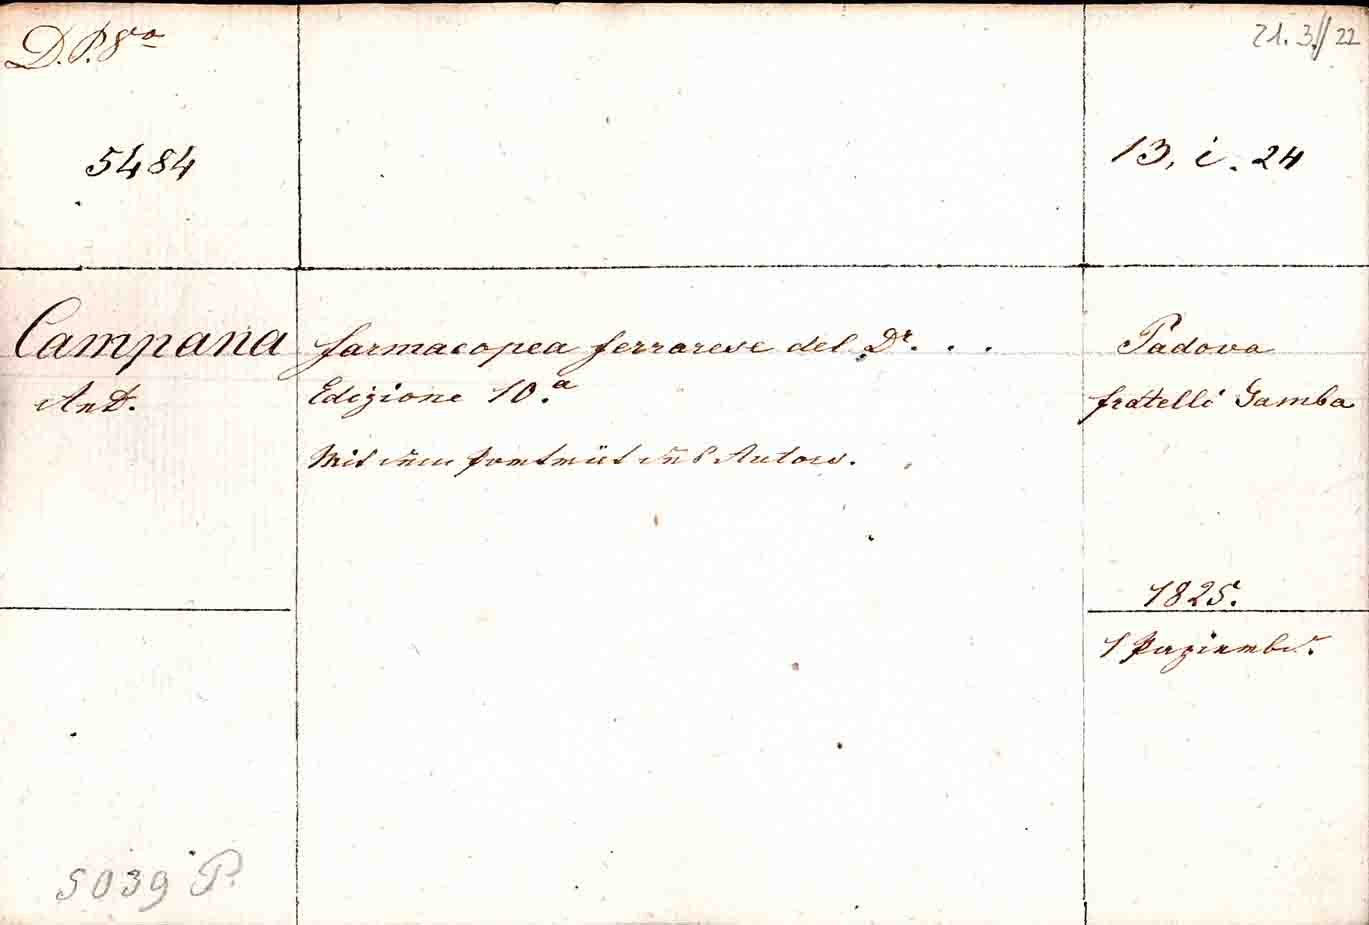 D.P. 8vo
5484
21. 3.// 22
13. i. 24
Campana
Ant.
farmacopea ferrarese del Dr. . .
Edizione 10.a
Mit einem Porträt des Autors.
Padova
fratelli Gamba
1825.
1 Papierbd.
5039 P.